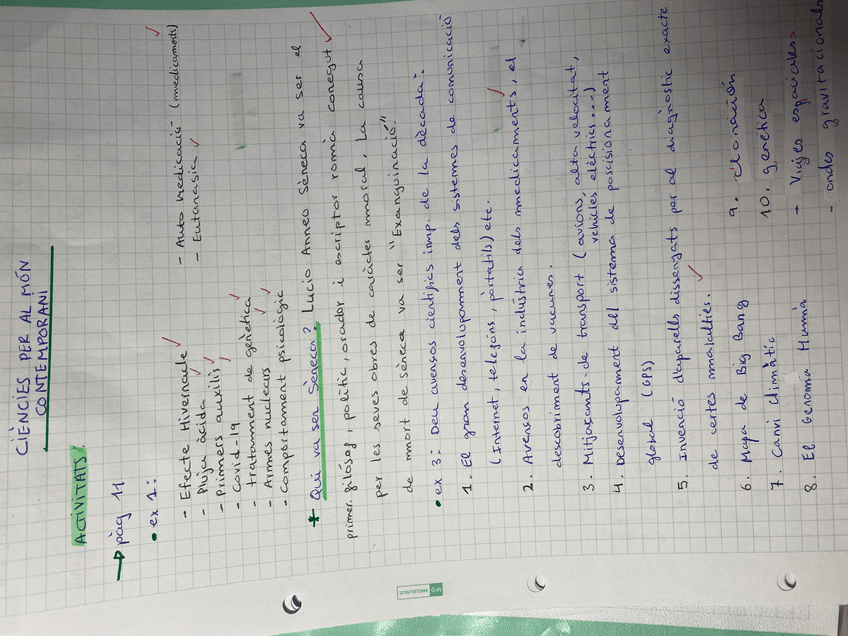 CIÈNCIES PER AL MÓN
CONTEMPORANI
ACTIVITATS:
→ pàg 11
• ex 1:
- Efecte Hivernacle
- Pluja àcida
- Primers auxilis
- Covid-19
- tratamment de gènetica
- Armes nuclears
- Comportament psicològic
- Auto Medicació (medicaments)
- Eutanasia
* Qui va ser Sèneca? Lucio Anneo Sèneca va ser el
primer filósof, polític, orador i escriptor romà conegut
per les seves obres de caràcter moral. La causa
de mort de sèneca va ser "Exanguinació"
• ex 3: Deu avensos científics imp. de la dècada:
1. El gran desenvolupament dels sistemes de comunicació
(Internet, telefons, portatils) etc.
2. Avensos en la indústria dels medicaments, el
descobriment de vacunes.
3. Mitjascants de transport (avions, alta velocitat,
vehicles elèctrics...)
4. Desenvolupament del sistema de poscisionament
global (GPS)
5. Invenció d'aparells dissenyats per al diagnòstic exacte
de certes malalties.
6. Mapa de Big Bang
7. Canvi climàtic
8. El Genoma Humà
9. Clonación
10. genetica
- Viajes espaciales
- ondes gravitacionals
MIQUELRIUS